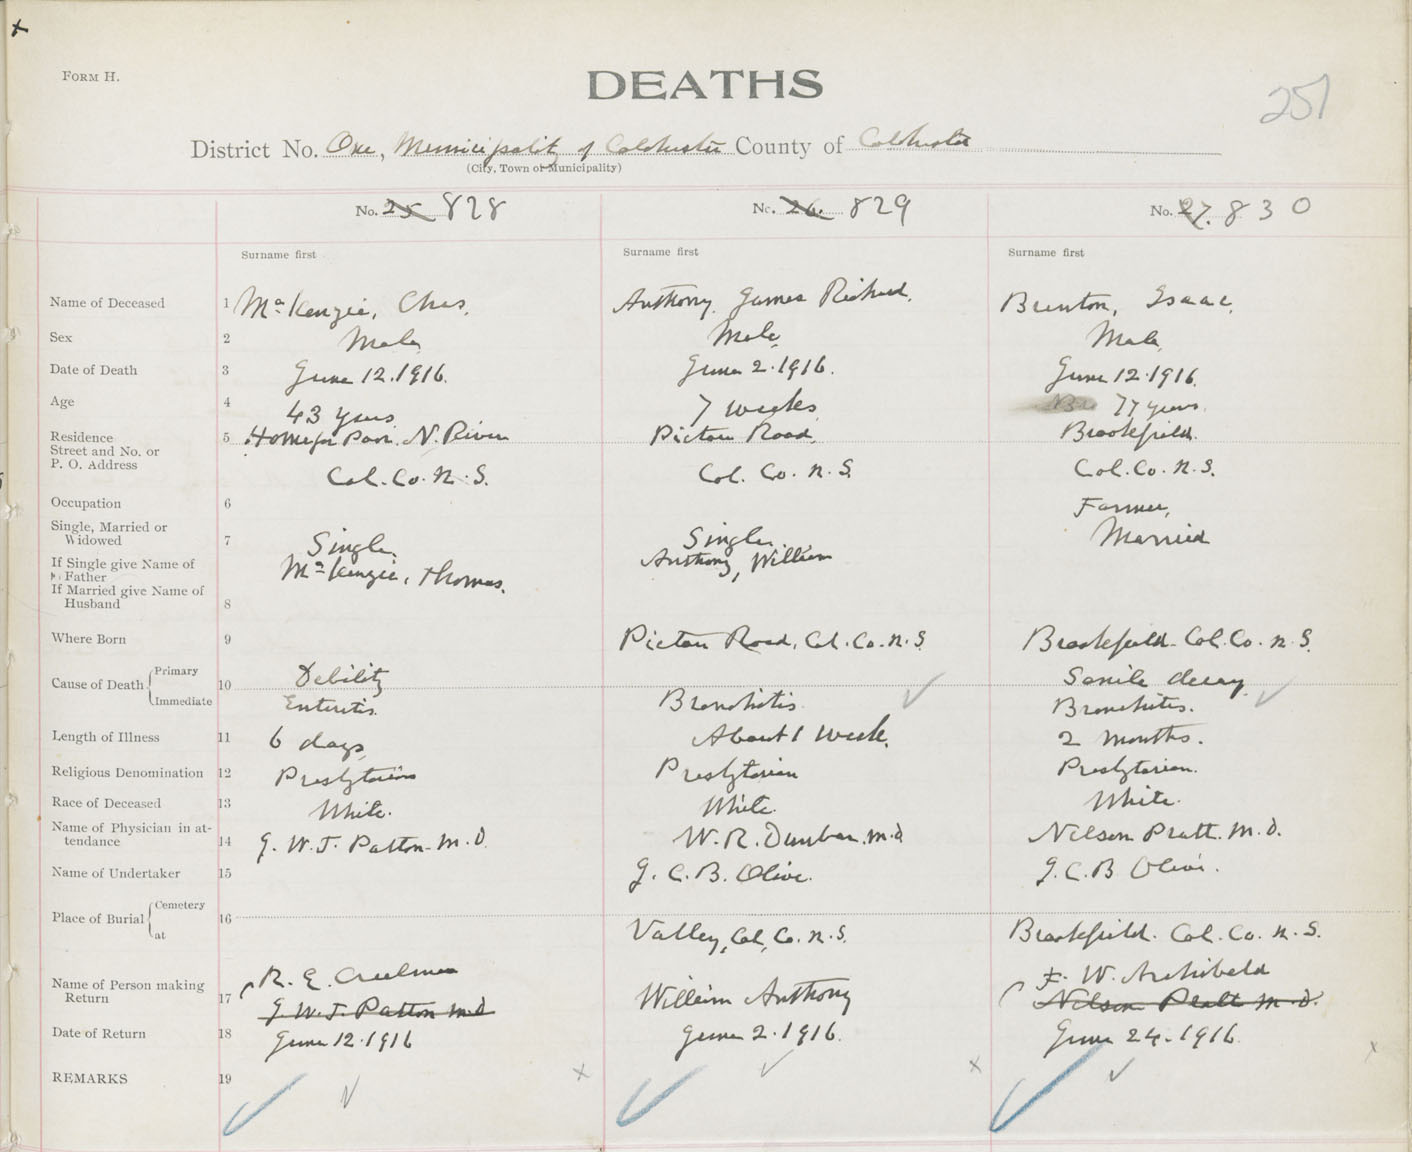 FORM H.
DEATHS
251
District No. One, Municipality of Colchester County of Colchester
(City, Town or Municipality)
No. 25 828
No. 26. 829
No. 27. 830
Surname first
Surname first
Surname first
Name of Deceased 1 McKenzie, Chas. Anthony James Richard. Brenton, Isaac.
Sex 2 Male Male Male
Date of Death 3 June 12.1916. June 2.1916. June 12.1916.
Age 4 43 years 7 weeks 77 years
Residence 5 Home for Poor. N. River Picton Road, Brookfield.
Street and No. or
P. O. Address Col. Co. N.S. Col. Co. N.S. Col. Co. N.S.
Occupation 6 Farmer,
Single, Married or
Widowed 7 Single. Single. Married
If Single give Name of
Father McKenzie, Thomas. Anthony, William
If Married give Name of
Husband 8
Where Born 9 Picton Road, Col. Co. N.S. Brookfield. Col. Co. N.S.
Cause of Death 10
Primary Debility Senile decay
Immediate Enteritis. Bronchitis Bronchitis.
Length of Illness 11 6 days, About 1 week. 2 months.
Religious Denomination 12 Presbyterian Presbyterian Presbyterian.
Race of Deceased 13 White. White. White.
Name of Physician in at-
tendance 14 G. W. T. Patton. M.D. W. R. Dunbar. M.D. Nelson Pratt. M.D.
Name of Undertaker 15 J. C. B. Olive. J. C. B. Olive.
Place of Burial 16
Cemetery
at Valley, Col. Co. N.S. Brookfield. Col. Co. N.S.
Name of Person making R. E. Creelman F. W. Archibald
Return 17 G. W. T. Patton M.D William Anthony Nelson Pratt M.D.
Date of Return 18 June 12.1916 June 2.1916. June 24.1916.
REMARKS 19